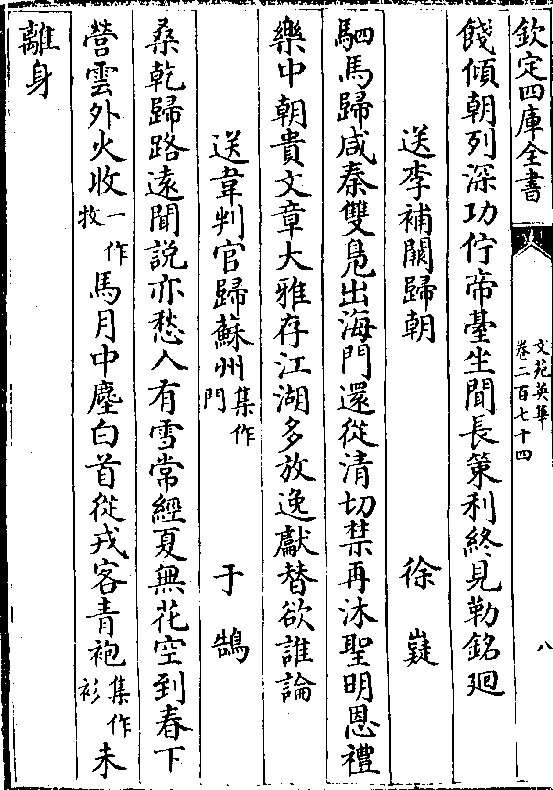 欽定四庫全書
文苑英華
卷二百七十四
八
餞傾朝列深功佇帝臺坐聞長策利終見勒銘廻
送李補闕歸朝 徐嶷
駟馬歸咸秦雙鳧出海門還從清切禁再沐聖明恩禮
樂中朝貴文章大雅存江湖多放逸獻替欲誰論
送韋判官歸蘇州集作門 于鵠
桑乾歸路遠聞說亦愁人有雪常經夏無花空到春下
營雲外火收一作牧馬月中塵白首從戎客青袍集作衫未
離身